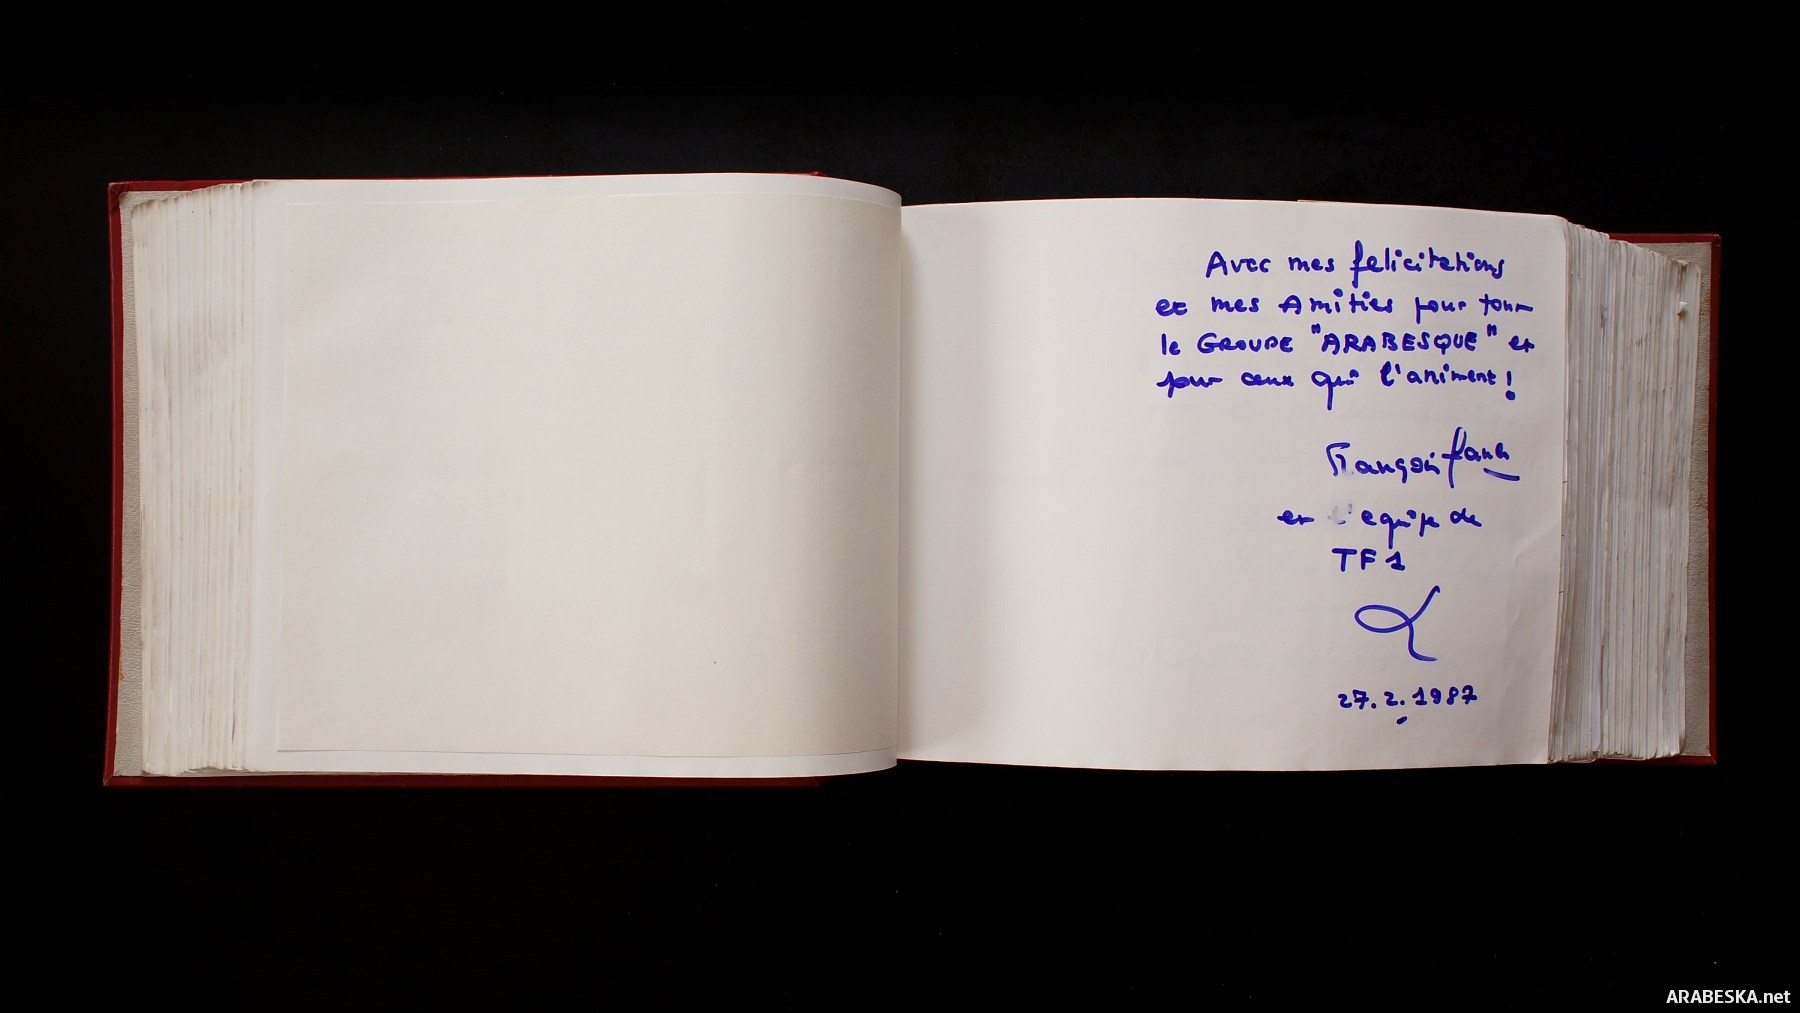 Avec mes felicitations
et mes Amitiés pour tout
le GROUPE "ARABESQUE" et
pour ceux qui l'animent !
François
et l'equipe de
TF1
27.2.1987
ARABESKA.net